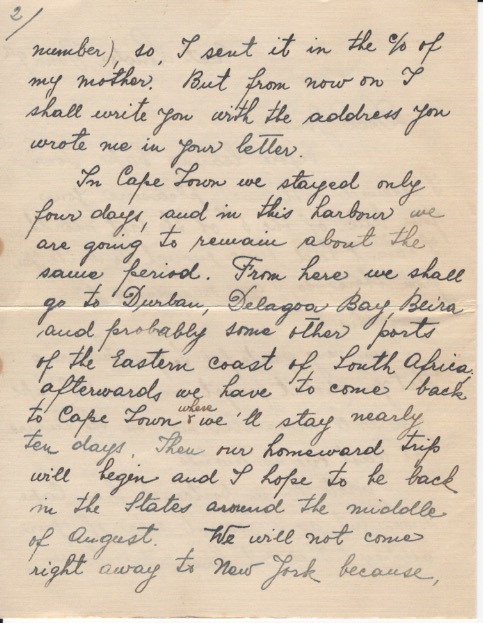 2/
number), so, I sent it in the c/o of
my mother. But from now on I
shall write you with the address you
wrote me in your letter.
In Cape Town we stayed only
four days, and in this harbour we
are going to remain about the
same period. From here we shall
go to Durban, Delagoa Bay, Beira
and probably some other ports
of the Eastern coast of South Africa,
afterwards we have to come back
where
to Cape Town & we'll stay nearly
ten days. Then our homeward trip
will begin and I hope to be back
in the States around the middle
of August. We will not come
right away to New York because,